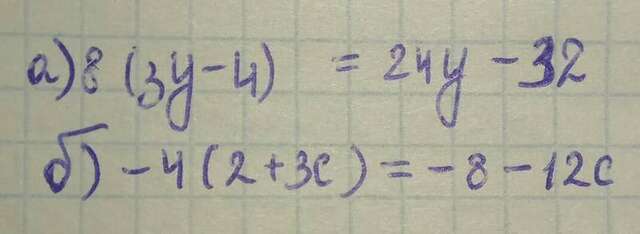 а) 8 (3y - 4) = 24y - 32
б) - 4 (2 + 3c) = - 8 - 12c